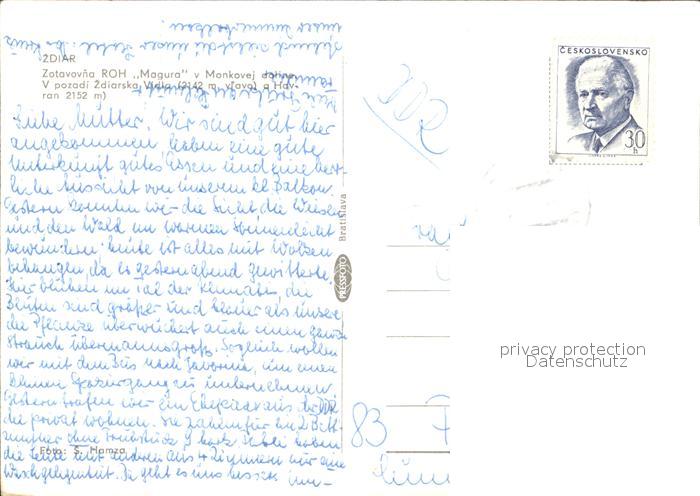 ŽDIAR
Zotavovňa ROH „Magura" v Monkovej doline
V pozadí Ždiarska Vidla (2142 m, vľavo) a Hav-
ran 2152 m)
Liebe Mutter, Wir sind gut hier
angekommen, haben eine gute
Unterkunft gutes Essen und eine herr-
liche Aussicht von unserem kl Balkon.
Gestern konnten wir die Sicht die Wiesen
und den Wald im warmen Sonnenlicht
bewundern, heute ist alles mit Wolken
behangen, da es gestern abend gewitterte.
Hier blühen im Tal der Klematis, die
Blüten sind größer und blauer als unsere
die Pflanze überwuchert auch einen ganzen
Strauch übermannsgroß. Sogleich wollen
wir mit dem Bus nach Javorina, um einen
kleinen Spaziergang zu unternehmen.
Gestern trafen wir ein Ehepaar aus der DDR
die privat wohnen. Sie zahlen für ein 2 Bett-
zimmer ohne Frühstück 9 Mark. Dabei haben
die Leute mit anderen aus 4 Zimmern nur eine
Waschgelegenheit. Da geht es uns besser
unser Zimmerbalkon.
DDR
ČESKOSLOVENSKO
30
h
PRESSFOTO
Bratislava
83
Foto: Š. Hamza
privacy protection
Datenschutz